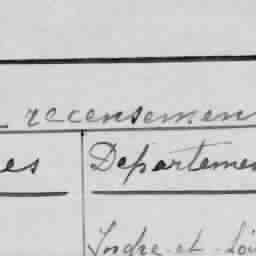 recensemen
es Departemen
Indre-et-Loi